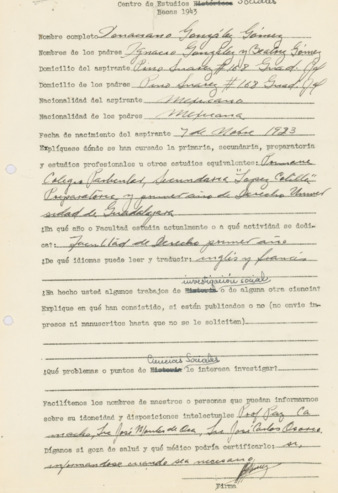 Centro de Estudios Históricos Sociales
Becas 1943
Nombre completo Donaciano González Gómez
Nombres de los padres Ignacio González y Beatriz Gómez
Domicilio del aspirante Pino Suarez #168 Guad. Jal
Domicilio de los padres Pino Suarez #168 Guad. Jal
Nacionalidad del aspirante Mexicana
Nacionalidad de los padres Mexicana
Fecha de nacimiento del aspirante 7 de Nbre 1923
Explíquese dónde se han cursado la primaria, secundaria, preparatoria
y estudios profesionales u otros estudios equivalentes: Primaria
Colegio Particular, Secundaria Lopez Cotilla
Preparatoria y primer año de Derecho Univer
sidad de Guadalajara
¿En qué año o Facultad estudia actualmente o a qué actividad se dedi-
ca: Facultad de Derecho primer año
¿De qué idiomas puede leer y traducir: inglés y francés
investigación social
¿En hecho usted algunos trabajos de Historia o de alguna otra ciencia?
Explique en qué han consistido, si están publicados o no (no envíe im-
presos ni manuscritos hasta que no se lo soliciten).
Ciencias Sociales
¿Qué problemas o puntos de Historia le interesa investigar?
Facilítenos los nombres de maestros o personas que puedan informarnos
sobre su idoneidad y disposiciones intelectuales Prof. Paz Ca
macho, Lic José Montes de Oca, Lic José Carlos Osorno
Díganos si goza de salud y qué médico podría certificarlo: si,
informandose cuando sea necesario
Firma